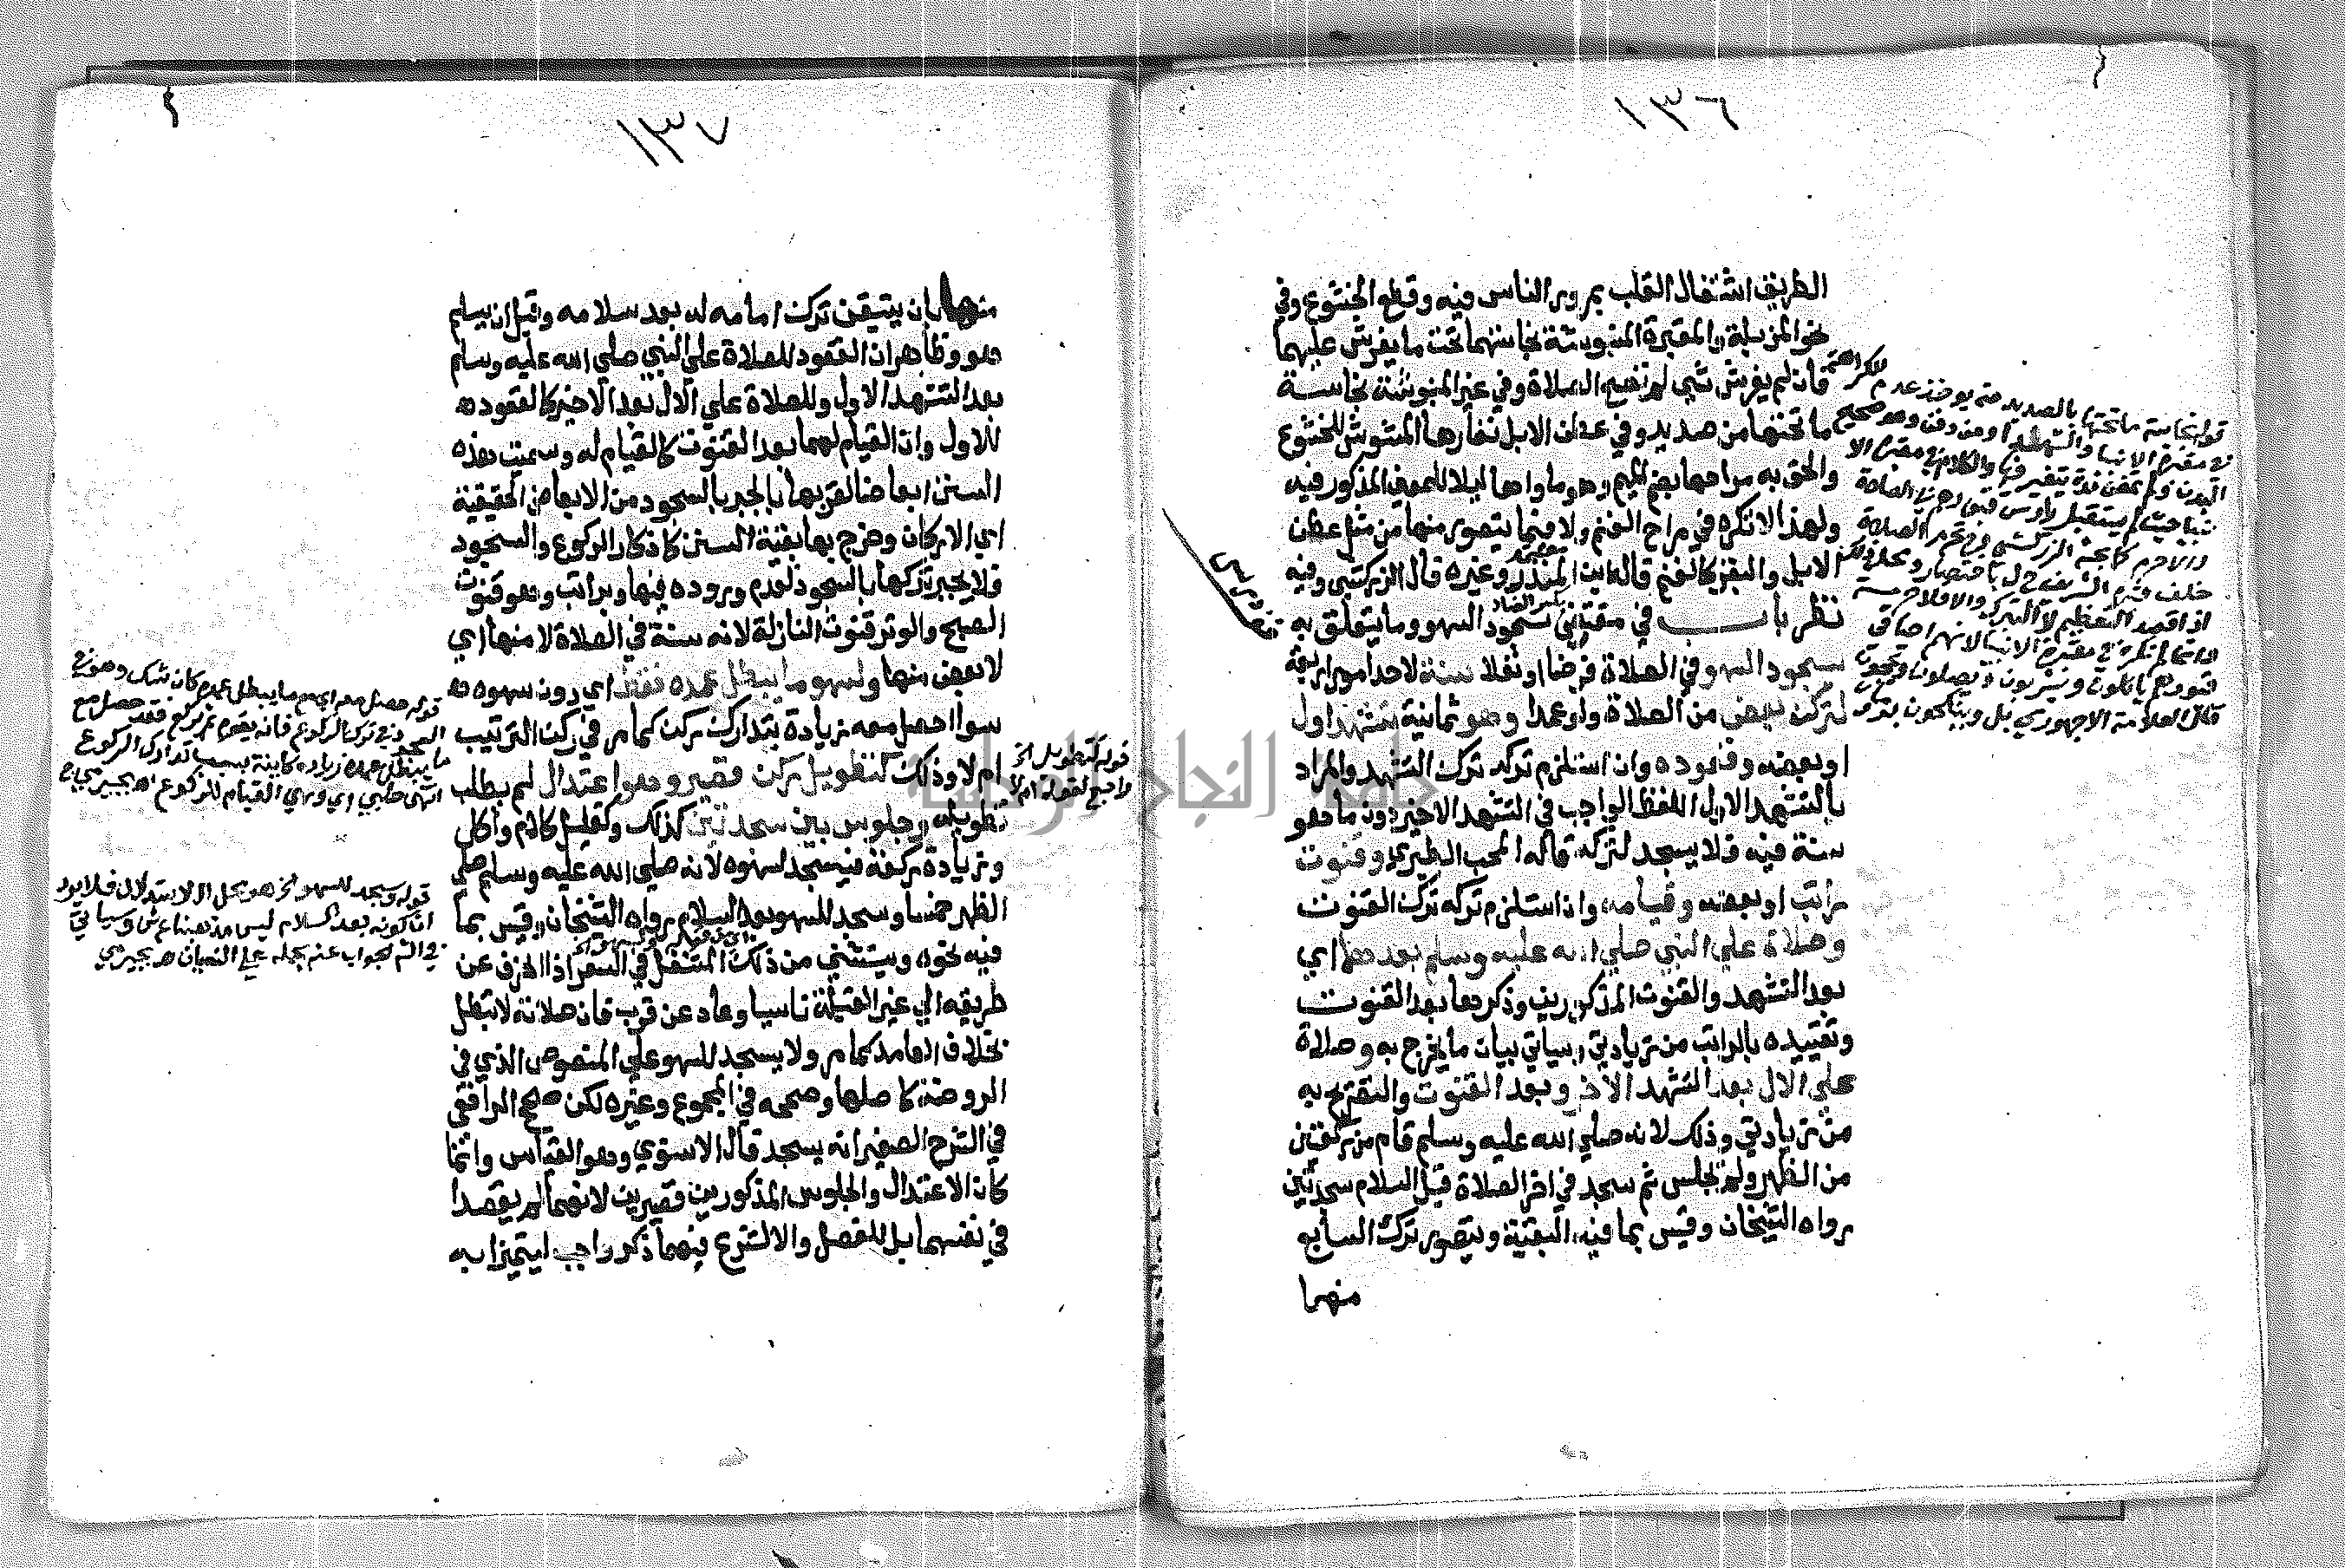 ١٣٦
الطريق اشتغال القلب بمرور الناس فيه وقطع الخشوع وفي
نحو المزبلة والمقبرة المنبوشة نجاستهما تحت ما يفرش عليهما
فان لم يفرش شي لم تصح الصلاة وفي غير المنبوشة نجاسة
ما تحتها من صديد وفي عطن الابل نفارها المشوش للخشوع
والحق به مراحها بضم الميم وهو ماواها ليلا للمعنى المذكور فيه
ولهذا لا تكره في مراح الغنم ولا فيما يتصور منها من مثل عطن
الابل والبقر كالغنم قاله ابن المنذر وغيره قال الزركشي وفيه
نظر باب في مقتضي سجود السهو وما يتعلق به
بكسر الضاد
سجود السهو في الصلاة فرضا او نفلا سنة لاحد امور اربعة
لترك بعض من الصلاة ولو عمدا وهو ثمانية تشهد اول
او بعضه وقعوده وان استلزم تركه ترك التشهد والمراد
بالتشهد الاول اللفظ الواجب في التشهد الاخير دون ما هو
سنة فيه فلا يسجد لتركه قاله المحب الطبري وقنوت
راتب او بعضه وقيامه وان استلزم تركه ترك القنوت
وصلاة على النبي صلى الله عليه وسلم بعدهما اي
بعد التشهد والقنوت المذكورين وذكرها بعد القنوت
وتقييده بالراتب من زيادتي وسياتي بيان ما يخرج به وصلاة
على الال بعد التشهد الاخر وبعد القنوت والتصريح به
من زيادتي وذلك لانه صلى الله عليه وسلم قام من ركعتين
من الظهر ولم يجلس ثم سجد في اخر الصلاة قبل السلام سجدتين
رواه الشيخان وقيس بما فيه البقية ويتصور ترك السابع
منها
قوله نجاسة ما تحتها بالصديد منه يوخذ عدم الكراهة
في مقبرة الانبيا والشهدا
قبورهم ياكلون ويشربون ويصلون ويحجون
قال العلامة الاجهوري بل وينكحون
تنفر درس
١٣٧
منها بان يتيقن ترك امامه له بعد سلامه وقبل ان يسلم
هو وظاهر ان القعود للصلاة على النبي صلي الله عليه وسلم
بعد التشهد الاول وللصلاة علي الال بعد الاخير كالقعود
للاول وان القيام لهما بعد القنوت كالقيام له وسميت هذه
السنن ابعاضا لقربها بالجبر بالسجود من الابعاض الحقيقية
اي الاركان وخرج بها بقية السنن كاذكار الركوع والسجود
فلا يجبر تركها بالسجود لعدم وروده فيها وبراتب وهو قنوت
الصبح والوتر قنوت النازلة لانه سنة في الصلاة لا منها اي
لا بعض منها ولسهو ما يبطل عمده فقط اي دون سهوه
سوا احصل معه زيادة بتدارك ركن كما مر في ركن الترتيب
ام لا وذلك كتطويل ركن قصير وهو اعتدال لم يطلب
تطويله وجلوس بين سجدتين كذلك وكقليل كلام واكل
وزيادة ركعة فيسجد لسهوه لانه صلي الله عليه وسلم صلي
الظهر خمسا وسجد للسهو بعد السلام رواه الشيخان وقيس بما
فيه نحوه ويستثني من ذلك المتنفل في السفر اذا انحرف عن
طريقه الي غير القبلة ناسيا وعاد عن قرب فان صلاته لا تبطل
بخلاف العامد كما مر ولا يسجد للسهو علي المنصوص الذي في
الروضة كاصلها وصححه في المجموع وغيره لكن صحح الرافعي
في الشرح الصغير انه يسجد قال الاسنوي وهو القياس وانما
كان الاعتدال والجلوس المذكورين قصيرين لانهما لم يقصدا
في نفسهما بل للفصل والا لشرع فيهما ذكر واجب ليتميزا به
قوله كتطويل الخ
راجع لقوله ام لا
قوله حصل معه اي مع ما يبطل عمده كان شك وهو في
السجود في ترك الركوع فانه يقوم ثم يركع فقد حصل مع
ما يبطل عمده زيادة كاينة بسبب تدارك الركوع
انتهى حلبي اي وهي القيام للركوع اه بجيرمي
قوله وسجد للسهو الخ هو محل الاستدلال فلا يرد
ان كونه بعد السلام ليس مذهبنا ع ش وسياتي
في الشم الجواب عنه بحمله علي النسيان اه بجيرمي
جامعة النجاح الوطنية